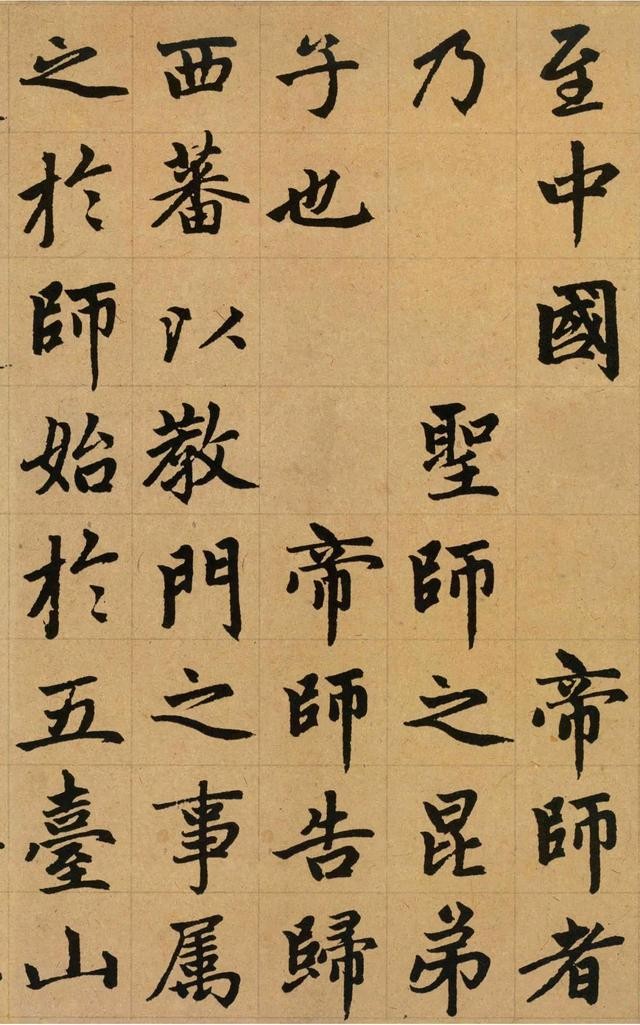 至中國帝師者
乃聖師之昆弟
子也帝師告歸
西蕃以教門之事属
之於師始於五臺山